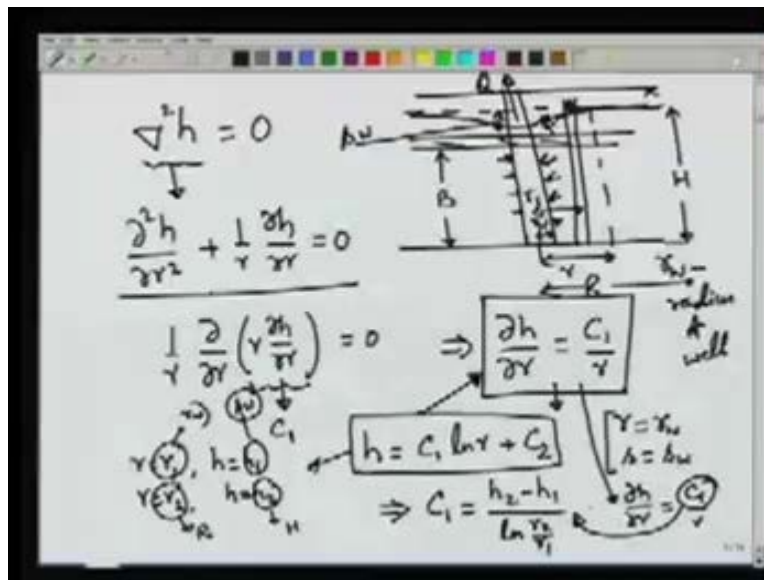 ∇²h = 0
∂²h/∂r² + 1/r ∂h/∂r = 0
1/r ∂/∂r (r ∂h/∂r) = 0 ⇒ ∂h/∂r = C₁/r
C₁
h = C₁ ln r + C₂
r = r₁, h = h₁
r = r₂, h = h₂
R₀ H
⇒ C₁ = (h₂ - h₁)/(ln r₂/r₁)
r = r_w
s = s_w
∂h/∂r = C₁/r
Q
s_w
B
H
r
r_w –
radius
of
well